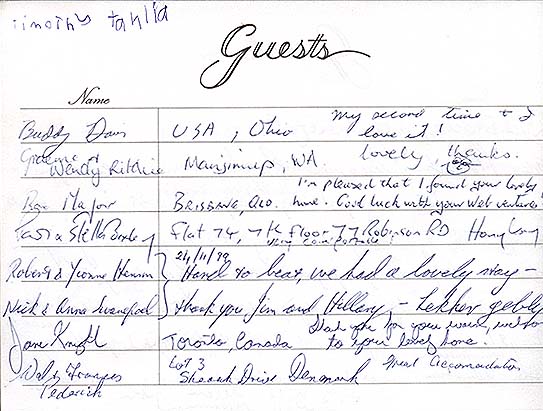 Timothy Tahlia
Guests
Name
Buddy Davis USA, Ohio My second time & I love it!
Graeme & Wendy Ritchie Manjimup, WA. lovely, thanks.
Ron Major BRISBANE, QLD. I'm pleased that I found your lovely home. Good luck with your web ventures!
Flat 74, 7th floor 77 Robinson RD Hong Kong
very comfortable!
24/11/99
Robert & Yvonne Hard to beat, we had a lovely stay -
Nick & Anna thank you, Jim and Hillary, - Lekker
Jane Knight Toronto, Canada Thank you for your warm welcome to your lovely home.
Lot 3
Drive Denmark Great Accomodation